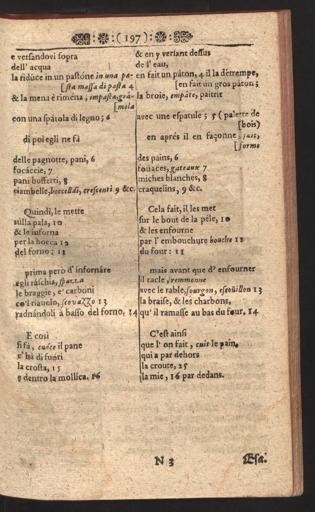 :(197):
e versandovi sopra
dell' acqua
la ridúce in un pastóne in una pa-
[sta massa di pasta 4
& la mena è riména; impasta, grá-
[mola
con una spátola di legno; 6
di poi egli ne fà
delle pagnotte, pani, 6
focáccie, 7
pani buffetti, 8
ciambelle, boccellái, crescenti 9 &c.
Quindi, le mette
sulla pala, 10
& le inforna
per la bocca 12
del forno; 11
prima però d' infornáre
egli ráschia, spazza
le braggie, e' carboni
co'l riavolo, scovazzo 13
radnándoli à basso del forno, 14
E così
si fà, cuóce il pane
c' hà di fuóri
la crosta, 15
e dentro la mollica. 16
& en y versant dessus
de l' eau,
en fait un pâton, 4 il la détrempe,
[en fait un gros pâton;
la broie, empâte, paitrit
avec une espatule; 5 (palette de
[bois)
en aprés il en façonne, fait,
[forme
des pains, 6
fouaces, gateaux 7
miches blanches, 8
craquelins, 9 &c.
Cela fait, il les met
sur le bout de la pêle, 10
& les enfourne
par l' embouchure bouche 12
du four: 11
mais avant que d' enfourner
il racle, remmonne
avec le rable, fourgon, escouillon 13
la braise, & les charbons,
qu' il ramasse au bas du four, 14
C'est ainsi
que l' on fait, cuit le pain,
qui a par dehors
la croute, 25
la mie, 16 par dedans.
N 3
Esa.